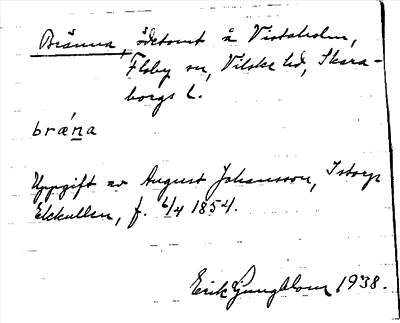 Bränna, ödetomt å Vistaholm,
Floby sn, Vilske hd, Skara-
borgs l.
bræ´na
Uppgift av August Johansson, Istorp
Ekkullen, f. 6/4 1854.
Erik Ljungblom 1938.